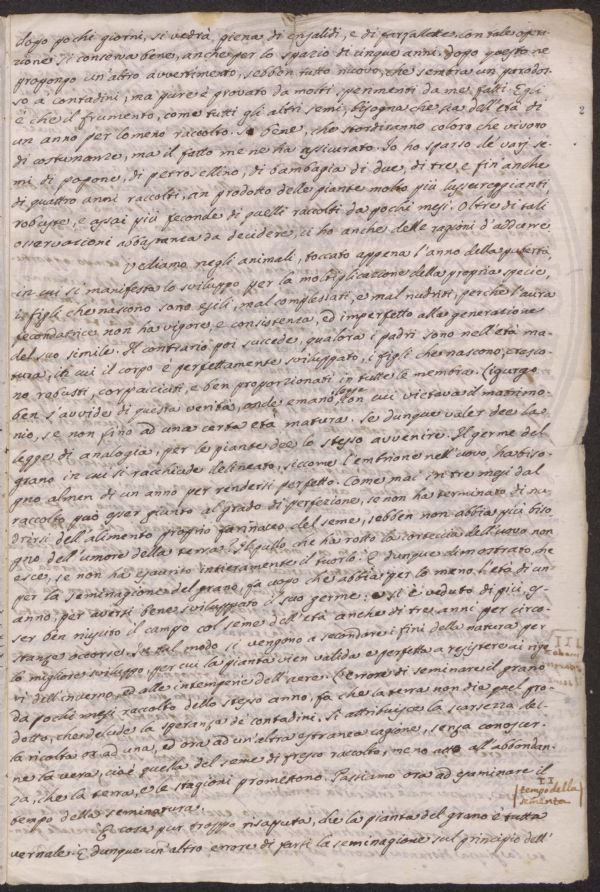 dopo pochi giorni, si vedrà piena di crisalidi, e di farfallette. con tale opera-
zione si conserva bene, anche per lo spazio di cinque anni. dopo questo ne
propongo un'altro avvertimento, sebben tutto nuovo, che sembra un parados-
so a contadini, ma pure è provato da molti sperimenti da me fatti. Egli
è che il frumento, come tutti gli altri semi, bisogna che sia dell'età di
un anno per lo meno raccolto. So bene, che stordiranno coloro che vivono
di costumanze, ma il fatto me ne ha assicurato. Io ho sparso le varj se-
mi di papone, di petrosellino, di bambagia di due, di tre, e fin anche
di quattro anni raccolti, an prodotto delle piante molto più lussureggianti,
robuste, e assai più feconde di quelli raccolti da pochi mesi. Oltre di tali
osservazioni abbastanza da decidere, ci ho anche delle ragioni d'addurre.
2
Vediamo negli animali, toccato appena l'anno della pubertà,
in cui si manifesta lo sviluppo per la moltiplicazione della propria specie,
i figli che nascono sono esili, mal complessati, e mal nudriti, perche l'aura
fecondatrice non ha vigore, e consistenza, ed imperfetto alla generazione
del suo simile. Il contrario poi succede, qualora i padri sono nell'età ma-
tura, in cui il corpo è perfettamente sviluppato, i figli che nascono, cresco-
no robusti, corpacciuti, e ben proporzionati in tutte le membra. Ligurgo
ben s'avvide di questa verità, onde emanò legge con cui vietava il matrimo-
nio, se non fino ad una certa età matura. Se dunque valer dee la
legge di analogia, per le piante dee lo stesso avvenire. Il germe del
grano in cui si racchiude delineato, siccome l'embrione nell'uovo, ha biso-
gno almen di un anno per rendersi perfetto. Come mai in tre mesi dal
raccolto può esser giunto al grado di perfezione, se non ha terminato di nu-
drirsi dell'alimento proprio farinaceo del seme, sebben non abbia più biso-
gno dell'umore della terra? Il pullo che ha rotto la corteccia dell'uovo non
esce, se non ha esaurito intieramente il tuorlo. È dunque dimostrato, che
per la seminagione del grano, fa uopo che abbia per lo meno l'età di un
anno, per aversi bene sviluppato il suo germe. Si è veduto di più, es-
ser ben riusuto il campo col seme dell'età anche di tre anni per circo-
stanze occorse. In tal modo si vengono a secondare i fini della natura per
lo migliore sviluppo, per cui la pianta vien valida e perfetta a resistere ai rigo-
ri dell'inverno, ed alle intemperie dell'aere. L'errore di seminare il grano
da pochi mesi raccolto dello stesso anno, fa che la terra non die quel pro-
dotto, che delude la speranza de' contadini. Si attribuisce la scarsezza del-
la ricolta ora ad una, ed ora ad un'altra estranea cagione, senza conoscer-
ne la vera, cioè quella del seme di fresco raccolto, meno atto all'abbondan-
za, che la terra, e le stagioni promettono. Passiamo ora ad esaminare il
tempo della seminatura.
II
tempo della
sementa
È cosa pur troppo risaputa, che la pianta del grano è tutta
vernale. È dunque un'altro errore di farsi la seminagione sul principio dell'